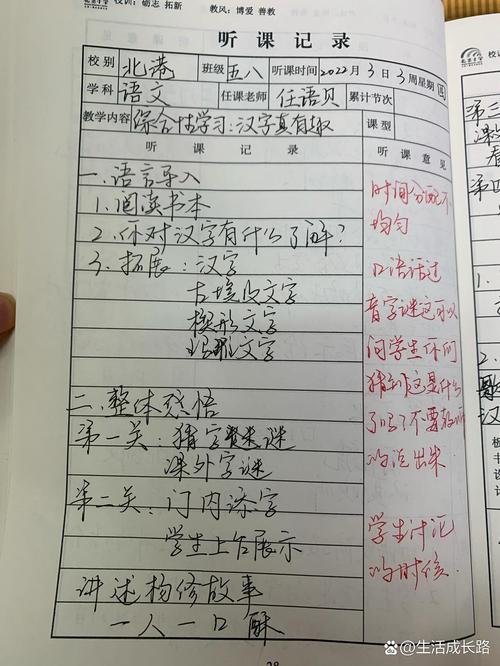 校训：砺志 拓新 教风：博爱 善教
听课记录
校别 北港 班级 五八 听课时间 2022年3月3日 3周星期四
学科 语文 任课老师 任语贝 累计节次
教学内容 综合性学习：汉字真有趣 课型
听 课 记 录 听 课 意 见
一.语言导入
1.阅读书本
2.你对汉字有什么了解？
3.拓展：汉字
古埃及文字
楔形文字
文字
二.整体感悟
第一关：猜字谜
课外字谜
第二关：门内添字
学生上台展示
讲述杨修故事
一人一口酥
时间分配不
均匀
口语话过
音字谜这可以
问学生你们
猜到这是什么
了吗？不要
的说出来
学生讨论
的时候
28
@生活成长路